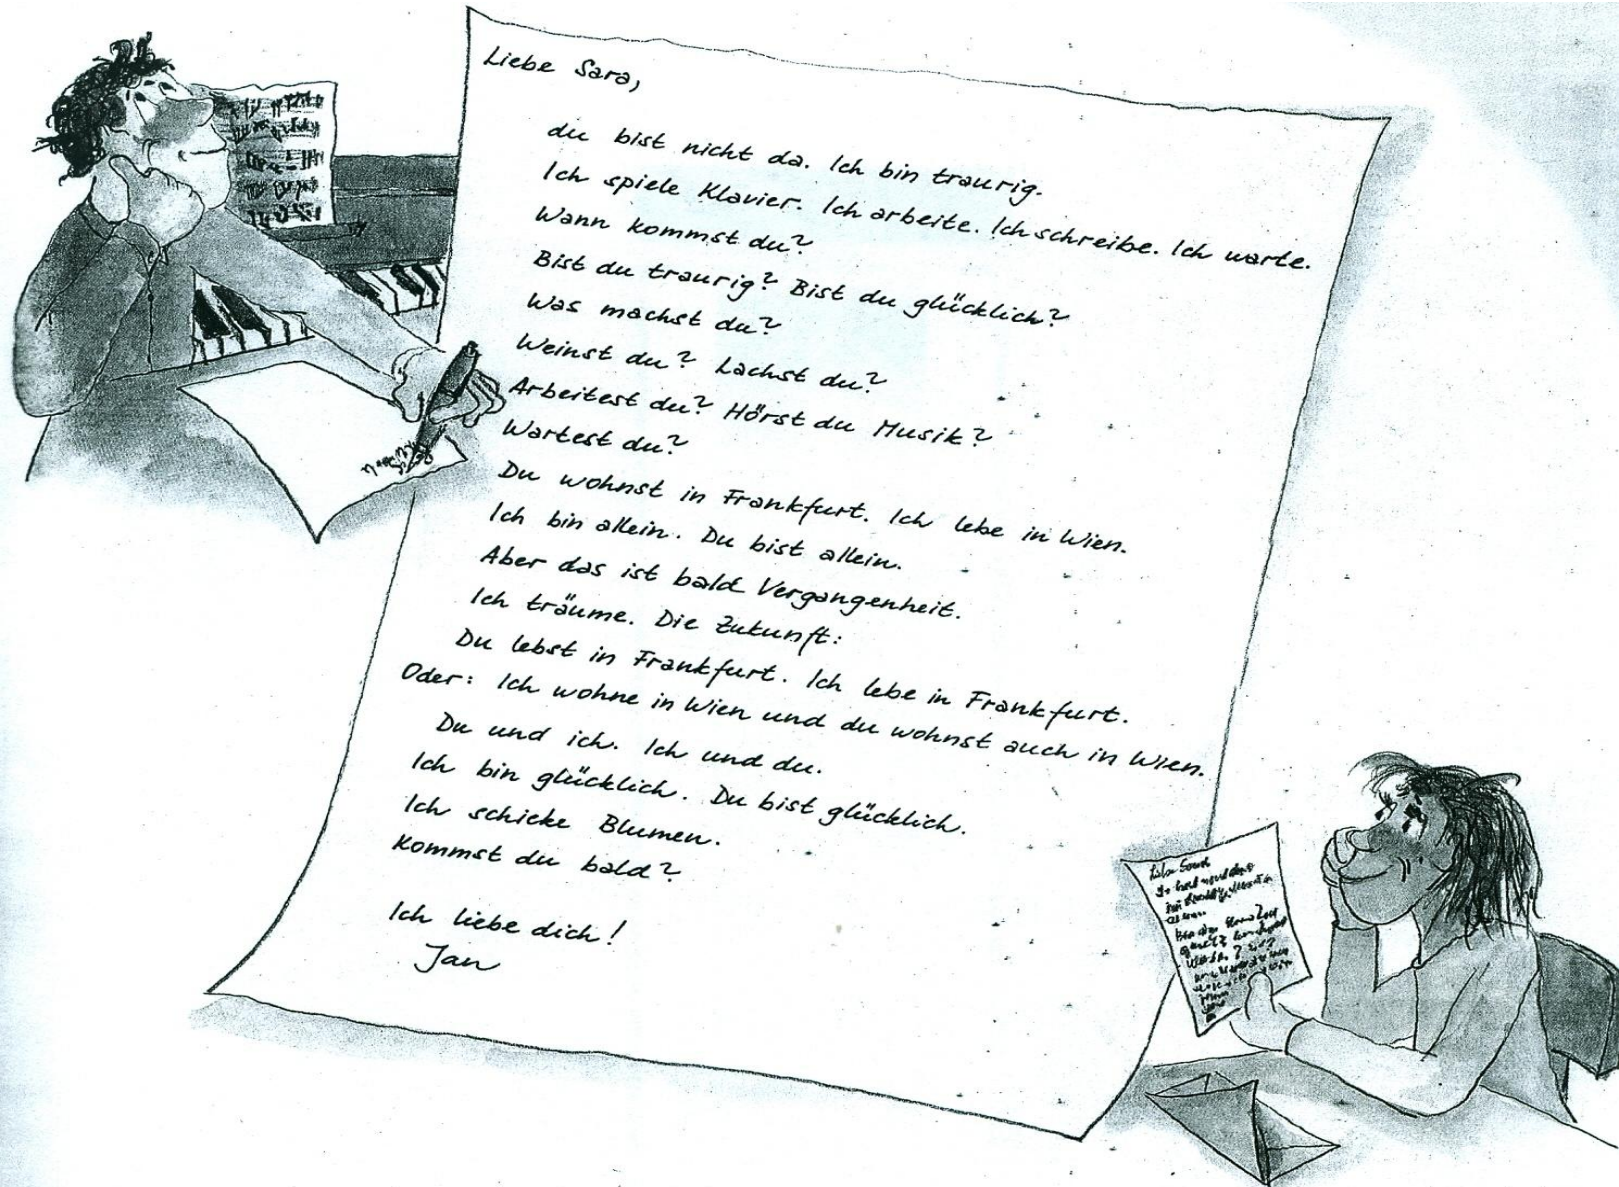 Liebe Sara,
du bist nicht da. Ich bin traurig.
Ich spiele Klavier. Ich arbeite. Ich schreibe. Ich warte.
Wann kommst du?
Bist du traurig? Bist du glücklich?
Was machst du?
Weinst du? Lachst du?
Arbeitest du? Hörst du Musik?
Wartest du?
Du wohnst in Frankfurt. Ich lebe in Wien.
Ich bin allein. Du bist allein.
Aber das ist bald Vergangenheit.
Ich träume. Die Zukunft:
Du lebst in Frankfurt. Ich lebe in Frankfurt.
Oder: Ich wohne in Wien und du wohnst auch in Wien.
Du und ich. Ich und du.
Ich bin glücklich. Du bist glücklich.
Ich schicke Blumen.
Kommst du bald?
Ich liebe dich!
Jan